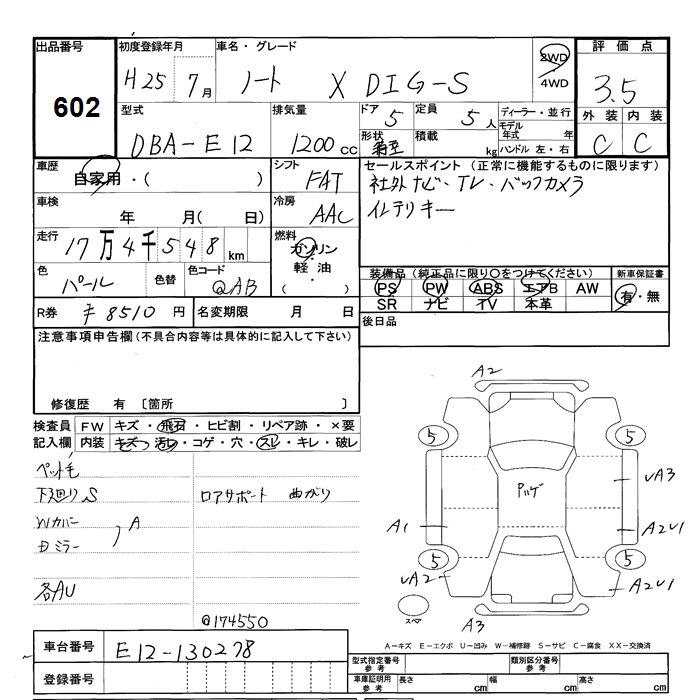 出品番号 初度登録年月 車名・グレード 2WD 評価点
602 H25 7月 ノート X DIG-S 4WD 3.5
型式 排気量 ドア 5 定員 5人 ディーラー・並行 外装 内装
DBA-E12 1200cc 形状 積載 kg モデル年式 年 C C
ハンドル 左・右
車歴 シフト セールスポイント (正常に機能するものに限ります)
自家用・( ) FAT 社外ナビ・TV・バックカメラ
車検 冷房 インテリキー
年 月( 日) AAC
走行 燃料
17万4千548km ガソリン
軽油
( )
色 色替 色コード 装備品 (純正品に限り○をつけてください) 新車保証書
パール QAB PS PW ABS エアB AW 有・無
SR ナビ TV 本革
R券 〒8510円 名変期限 月 日 後日品
注意事項申告欄 (不具合内容等は具体的に記入して下さい)
修復歴 有 〔箇所 〕
検査員 FW キズ・飛石・ヒビ割・リペア跡・×要
記入欄 内装 キズ・汚レ・コゲ・穴・スレ・キレ・破レ
ペット毛
下廻りS ロアサポート 曲がり
Wカバー
A
ミラー
各AU
@174550
A2
5 5
A3
A1 A2U1
5 5
A2 A2U1
スペア
A3
A-キズ E-エクボ U-凹み W-補修跡 S-サビ C-腐食 XX-交換済
車台番号 E12-130278
登録番号
型式指定番号 参考 類別区分番号 参考
車庫証明用 参考 長さ cm 幅 cm 高さ cm